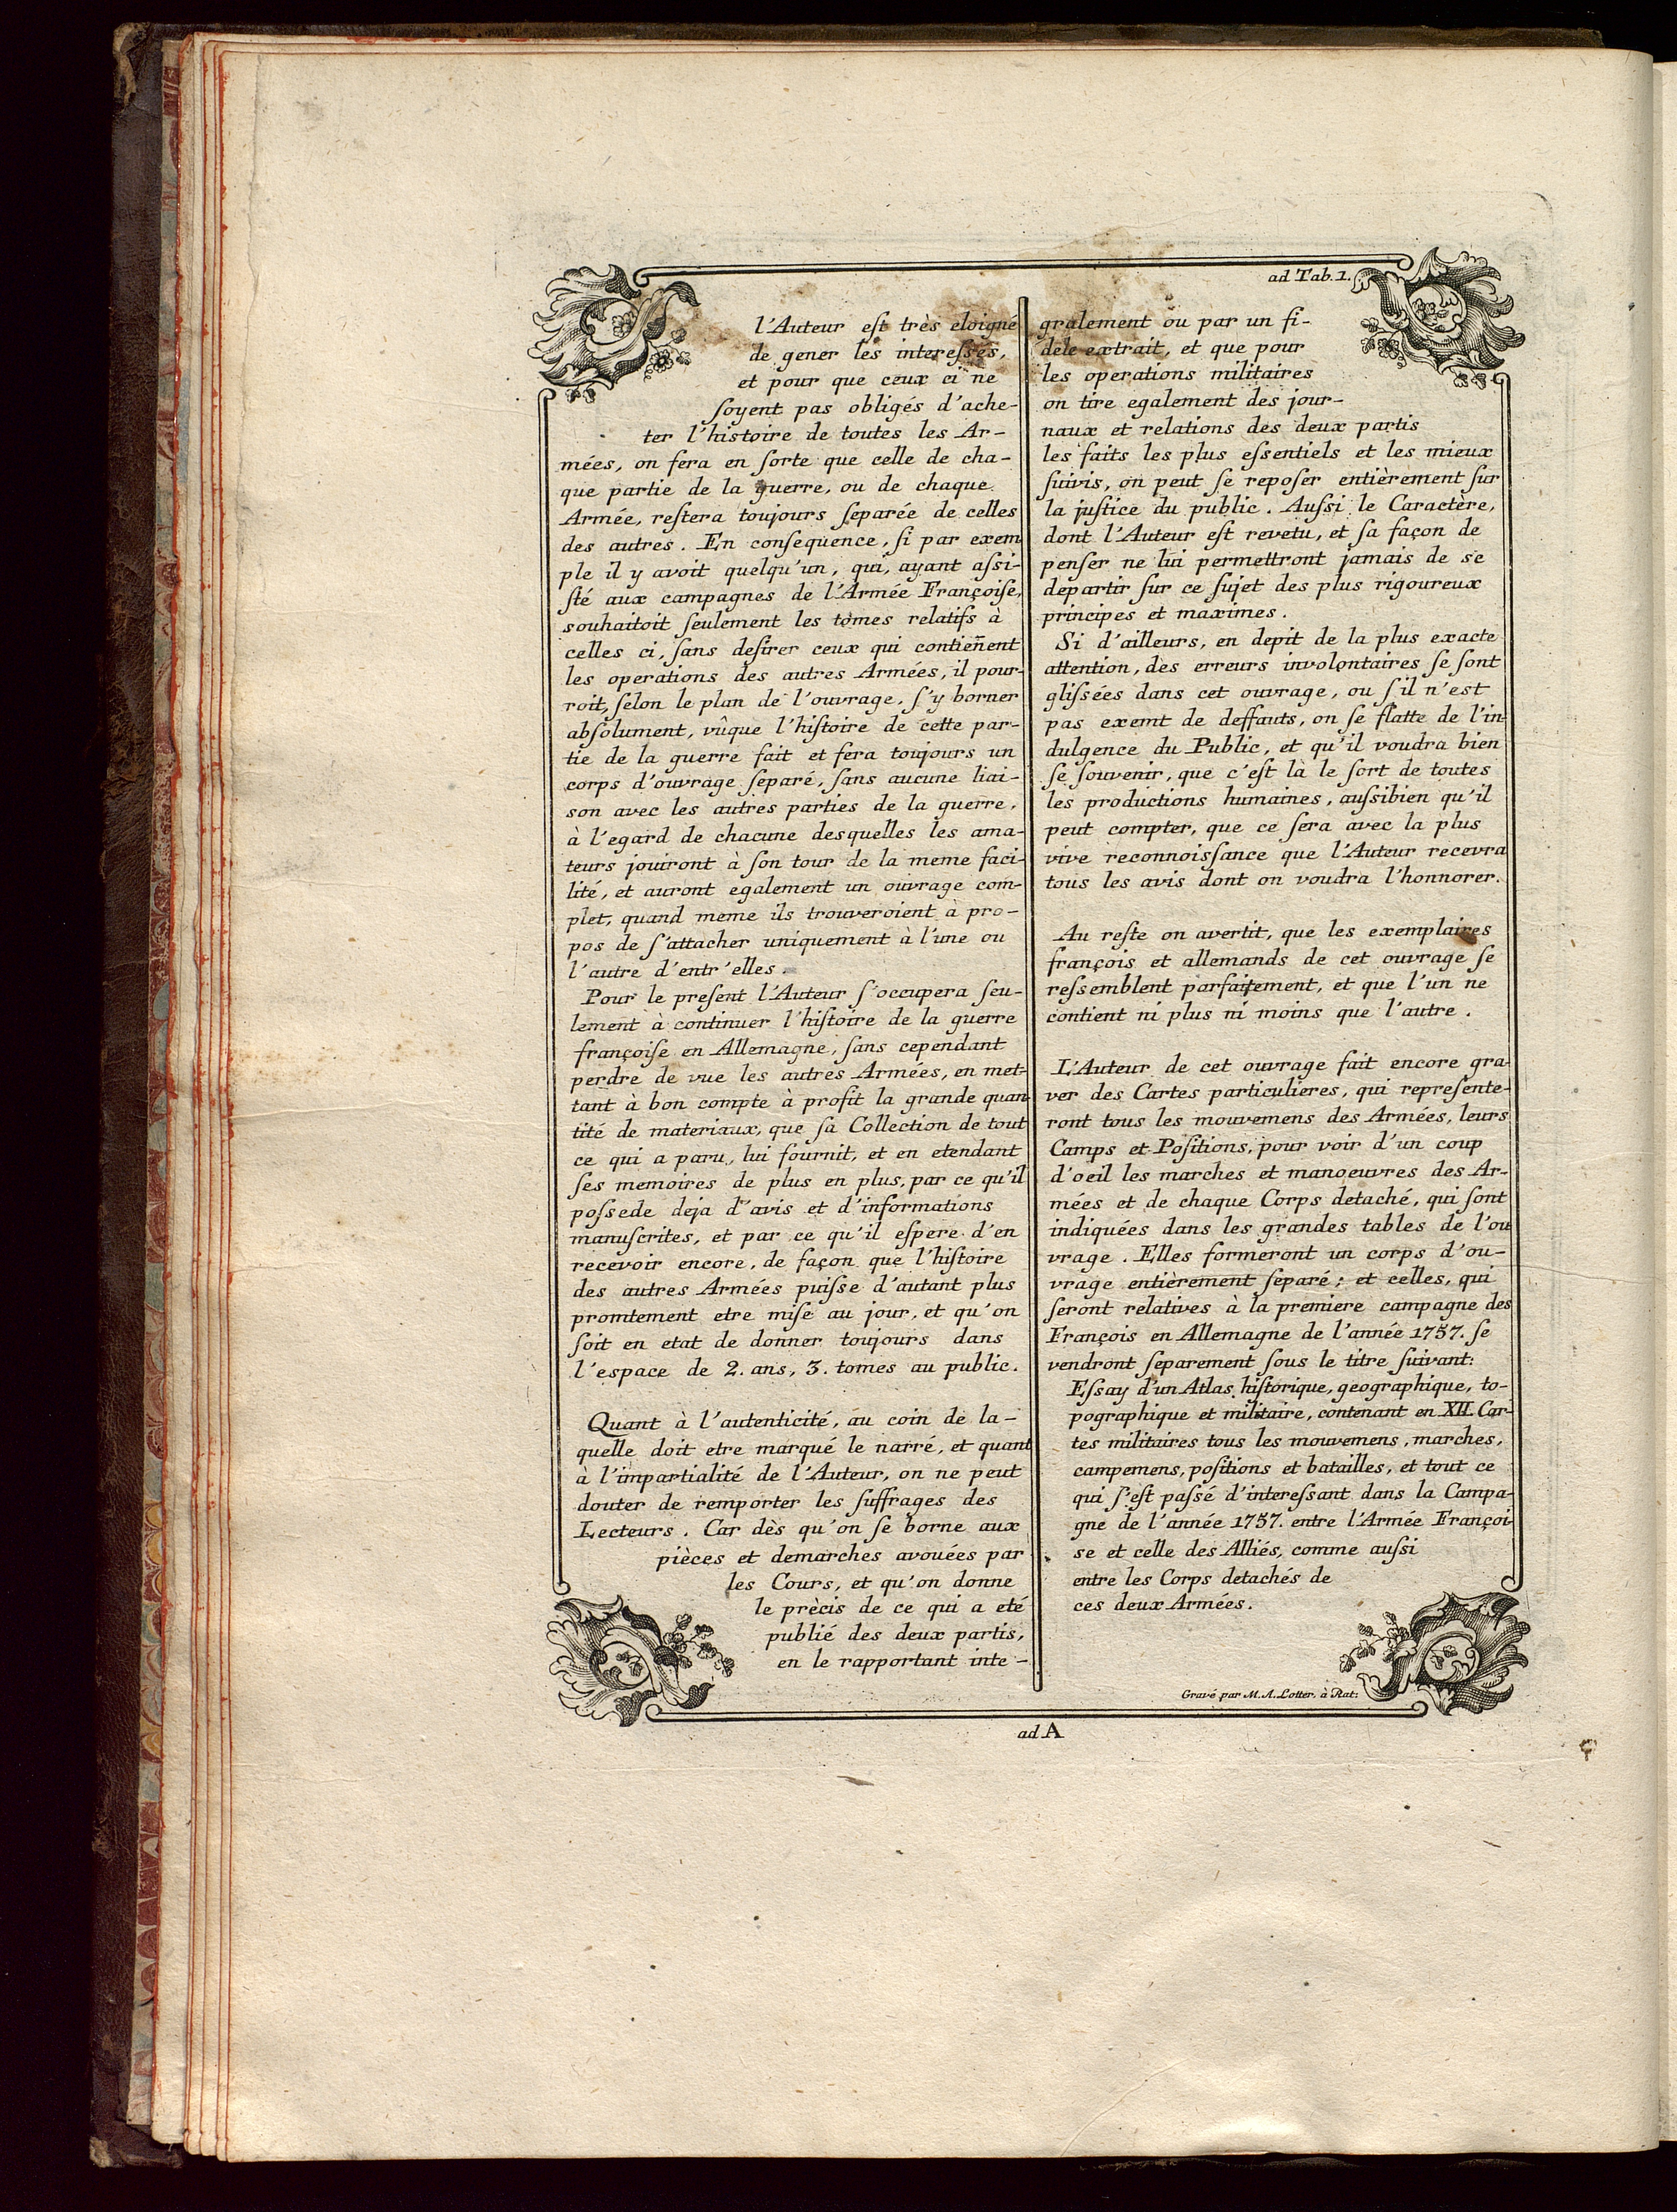 ad Tab. 1.
l'Auteur eſt très eloigné
de gener les intereſſés,
et pour que ceux ci ne
ſoyent pas obligés d'ache-
ter l'histoire de toutes les Ar-
mées, on fera en ſorte que celle de cha-
que partie de la guerre, ou de chaque
Armée, reſtera toujours ſeparée de celles
des autres. En conſequence, ſi par exem
ple il y avoit quelqu'un, qui, ayant aſsi-
ſté aux campagnes de l'Armée Françoiſe,
souhaitoit ſeulement les tomes relatifs à
celles ci, ſans deſirer ceux qui contieñent
les operations des autres Armées, il pour-
roit, ſelon le plan de l'ouvrage, ſ'y borner
abſolument, vûque l'hiſtoire de cette par-
tie de la guerre fait et fera toujours un
corps d'ouvrage ſeparé, ſans aucune liai-
son avec les autres parties de la guerre,
à l'egard de chacune desquelles les ama-
teurs jouiront à ſon tour de la meme faci-
lité, et auront egalement un ouvrage com-
plet, quand meme ils trouveroient à pro-
pos de ſ'attacher uniquement à l'une ou
l'autre d'entr'elles.
Pour le preſent l'Auteur ſ'occupera ſeu-
lement à continuer l'hiſtoire de la guerre
françoiſe en Allemagne, ſans cependant
perdre de vue les autres Armées, en met-
tant à bon compte à profit la grande quan
tité de materiaux, que ſa Collection de tout
ce qui a paru, lui fournit, et en etendant
ſes memoires de plus en plus, par ce qu'il
poſsede deja d'avis et d'informations
manuſcrites, et par ce qu'il eſpere d'en
recevoir encore, de façon que l'hiſtoire
des autres Armées puiſse d'autant plus
promtement etre miſe au jour, et qu'on
ſoit en etat de donner toujours dans
l'espace de 2. ans, 3. tomes au public.
Quant à l'autenticité, au coin de la-
quelle doit etre marqué le narré, et quant
à l'impartialité de l'Auteur, on ne peut
douter de remporter les ſuffrages des
Lecteurs. Car dès qu'on ſe borne aux
pièces et demarches avouées par
les Cours, et qu'on donne
le prècis de ce qui a eté
publié des deux partis,
en le rapportant inte-
gralement ou par un fi-
dele extrait, et que pour
les operations militaires
on tire egalement des jour-
naux et relations des deux partis
les faits les plus eſsentiels et les mieux
ſuivis, on peut ſe repoſer entièrement ſur
la juſtice du public. Auſsi le Caractère,
dont l'Auteur eſt revetu, et ſa façon de
penſer ne lui permettront jamais de se
departir ſur ce ſujet des plus rigoureux
principes et maximes.
Si d'ailleurs, en depit de la plus exacte
attention, des erreurs involontaires ſe ſont
gliſsées dans cet ouvrage, ou ſ'il n'est
pas exemt de deffauts, on ſe flatte de l'in-
dulgence du Public, et qu'il voudra bien
ſe ſouvenir, que c'eſt là le ſort de toutes
les productions humaines, auſsibien qu'il
peut compter, que ce ſera avec la plus
vive reconnoiſsance que l'Auteur recevra
tous les avis dont on voudra l'honnorer.
Au reſte on avertit, que les exemplaires
françois et allemands de cet ouvrage ſe
reſsemblent parfaitement, et que l'un ne
contient ni plus ni moins que l'autre.
L'Auteur de cet ouvrage fait encore gra-
ver des Cartes particulieres, qui repreſente-
ront tous les mouvemens des Armées, leurs
Camps et Poſitions, pour voir d'un coup
d'oeil les marches et manoeuvres des Ar-
mées et de chaque Corps detaché, qui ſont
indiquées dans les grandes tables de l'ou
vrage. Elles formeront un corps d'ou-
vrage entièrement ſeparé; et celles, qui
ſeront relatives à la premiere campagne des
François en Allemagne de l'année 1757. ſe
vendront ſeparement ſous le titre ſuivant:
Eſsay d'un Atlas hiſtorique, geographique, to-
pographique et militaire, contenant en XII. Car-
tes militaires tous les mouvemens, marches,
campemens, poſitions et batailles, et tout ce
qui ſ'eſt paſsé d'intereſsant dans la Campa-
gne de l'année 1757. entre l'Armée Françoi-
se et celle des Alliés, comme auſsi
entre les Corps detachés de
ces deux Armées.
Gravé par M. A. Lotter. à Rat:
ad A